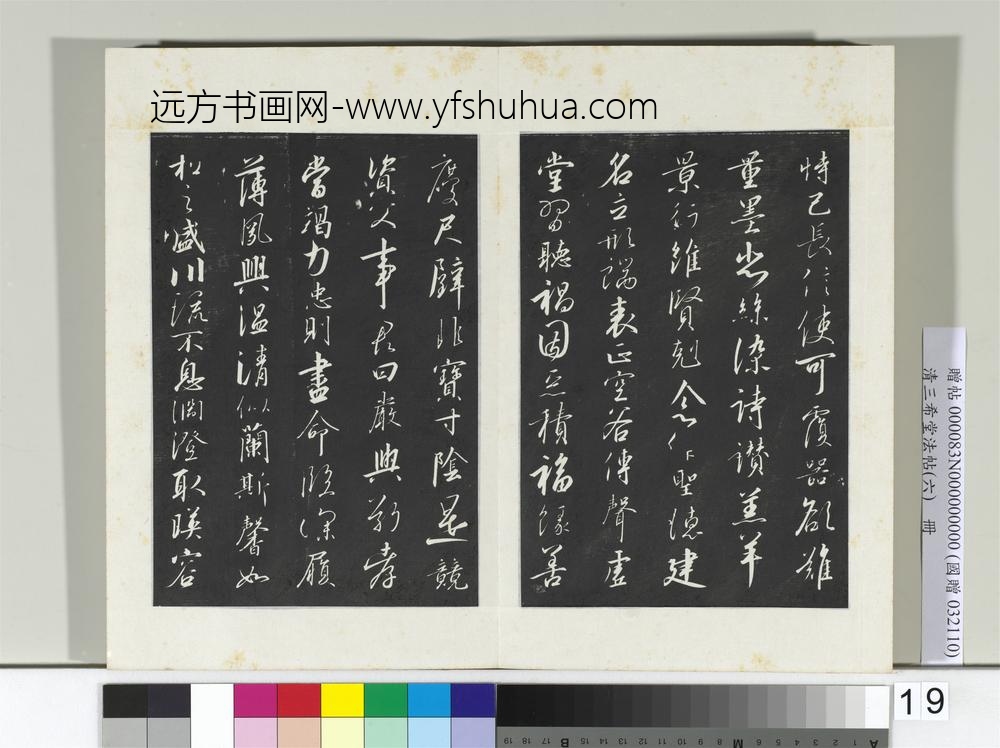 远方书画网-www.yfshuhua.com
恃己長信使可覆器欲難
量墨悲絲染詩讚羔羊
景行維賢剋念作聖德建
名立形端表正空谷傳聲虛
堂習聽禍因惡積福緣善
慶尺璧非寶寸陰是競
資父事君曰嚴與敬孝
當竭力忠則盡命臨深履
薄夙興溫清似蘭斯馨如
松之盛川流不息淵澄取暎容
贈帖 000083N000000000 (國贈 032110)
清三希堂法帖(六) 冊
19